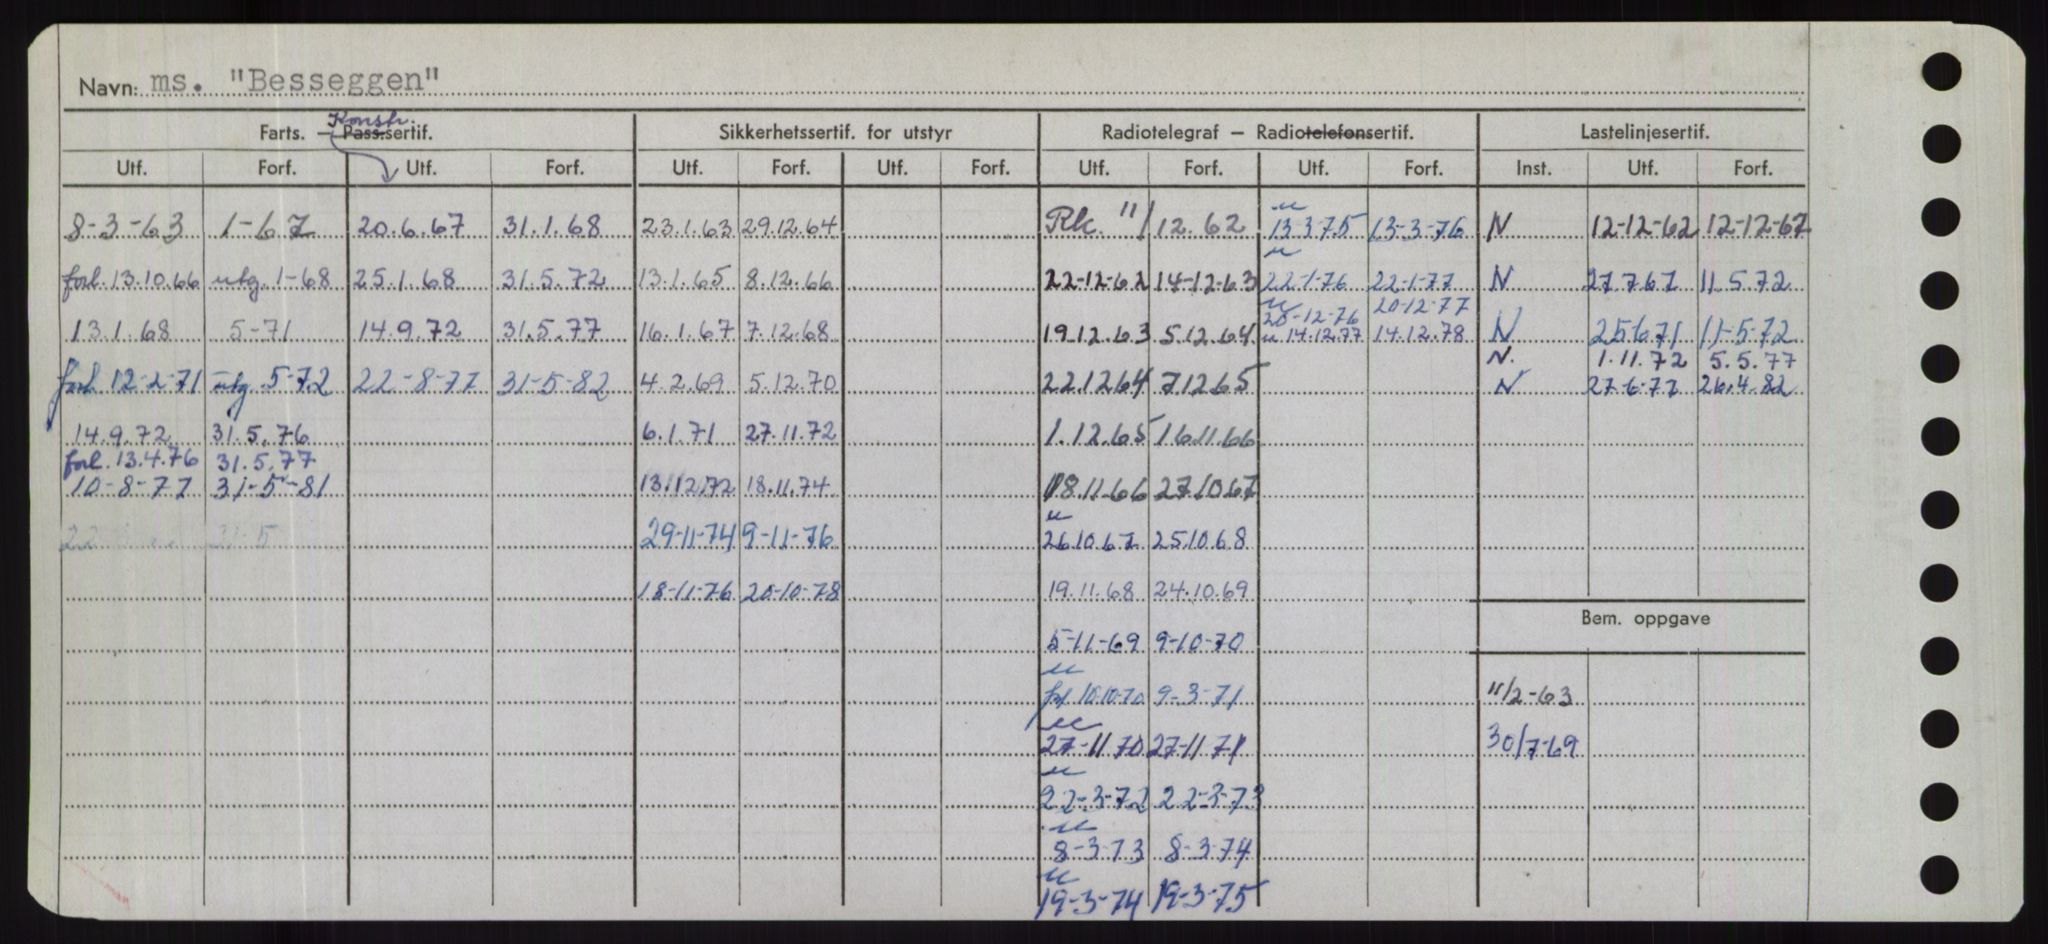 Navn: ms. "Besseggen"
Konstr.
Farts. – Pass.sertif. Sikkerhetssertif. for utstyr Radiotelegraf – Radiotelefonsertif. Lastelinjesertif.
Utf. Forf. Utf. Forf. Utf. Forf. Utf. Forf. Utf. Forf. Utf. Forf. Inst. Utf. Forf.
8-3-63 1-67 20.6.67 31.1.68 23.1.63 29.12.64 Rk 11/12.62 13-3-75 13-3-76 N 12-12-62 12-12-67
forl. 13.10.66 utg. 1-68 25.1.68 31.5.72 13.1.65 8.12.66 22-12-62 14-12-63 22-1-76 22-1-77 N 27.7.67 11.5.72
20-12-76 20-12-77
13.1.68 5-71 14.9.72 31.5.77 16.1.67 7.12.68 19.12.63 5.12.64 14.12.77 14.12.78 N 25.6.71 11-5-72
N. 1.11.72 5.5.77
forl. 12-2-71 utg. 5-72 22-8-77 31-5-82 4.2.69 5.12.70 22.12.64 7.12.65 N 27-6-77 26.4.82
14.9.72 31.5.76 6.1.71 27.11.72 1.12.65 16.11.66
forl. 13.4.76 31.5.77
10-8-77 31-5-81 13.12.72 18.11.74 18.11.66 27.10.67
22 31-5 29-11-74 9-11-76 26.10.67 25.10.68
18-11-76 20-10-78 19.11.68 24.10.69
Bem. oppgave
5-11-69 9-10-70
forl 10-10-70 9-3-71 11/2-63
27-11-70 27-11-71 30/7-69
22-3-72 22-3-73
8-3-73 8-3-74
19-3-74 19-3-75